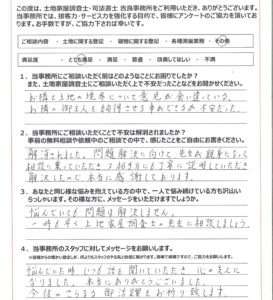 この度は、土地家屋調査士・司法書士 吉良事務所をご利用いただき、ありがとうございます。
当事務所では、接客力・サービス力を強化する目的で、皆様にアンケートのご協力を頂いております。お手数ですが、ご協力下さい。
ご相談内容 ・土地に関する登記 ・建物に関する登記 ・各種測量業務 ・その他
満足度 ・とても満足 ・満足 ・普通 ・改善してほしい ・不満
1．当事務所にご相談いただく前はどのようなことにお困りでしたか？
また、当事務所にご相談いただく上で不安だったことなどをお聞かせください。
お隣と土地の境界について意見が食い違っている。
お隣の御主人を納得させる事ができるか不安だった。
2．当事務所にご相談いただくことで不安は解消されましたか？
事前の無料相談や依頼中のご相談の中で、感じたことをご自由にお書きください。
解消されました。問題解決に向けて先生が親身になって
相談に乗っていただき
解決したので、本当に感謝しております。
3．あなたと同じ様な悩みを抱えている方の中で、一人で悩み続けている方も沢山いらっしゃいます。その様な方に、メッセージをいただけますでしょうか。
悩んでいても問題は解決しません。
一時も早く土地家屋調査士の先生に相談しましょう
4．当事務所のスタッフに対してメッセージをお願いします。
悩んでいた時いつも話を聞いていただき 心の支えに
なりました。本当にありがとうございました。
今後のさらなる御活躍をお祈り致します。